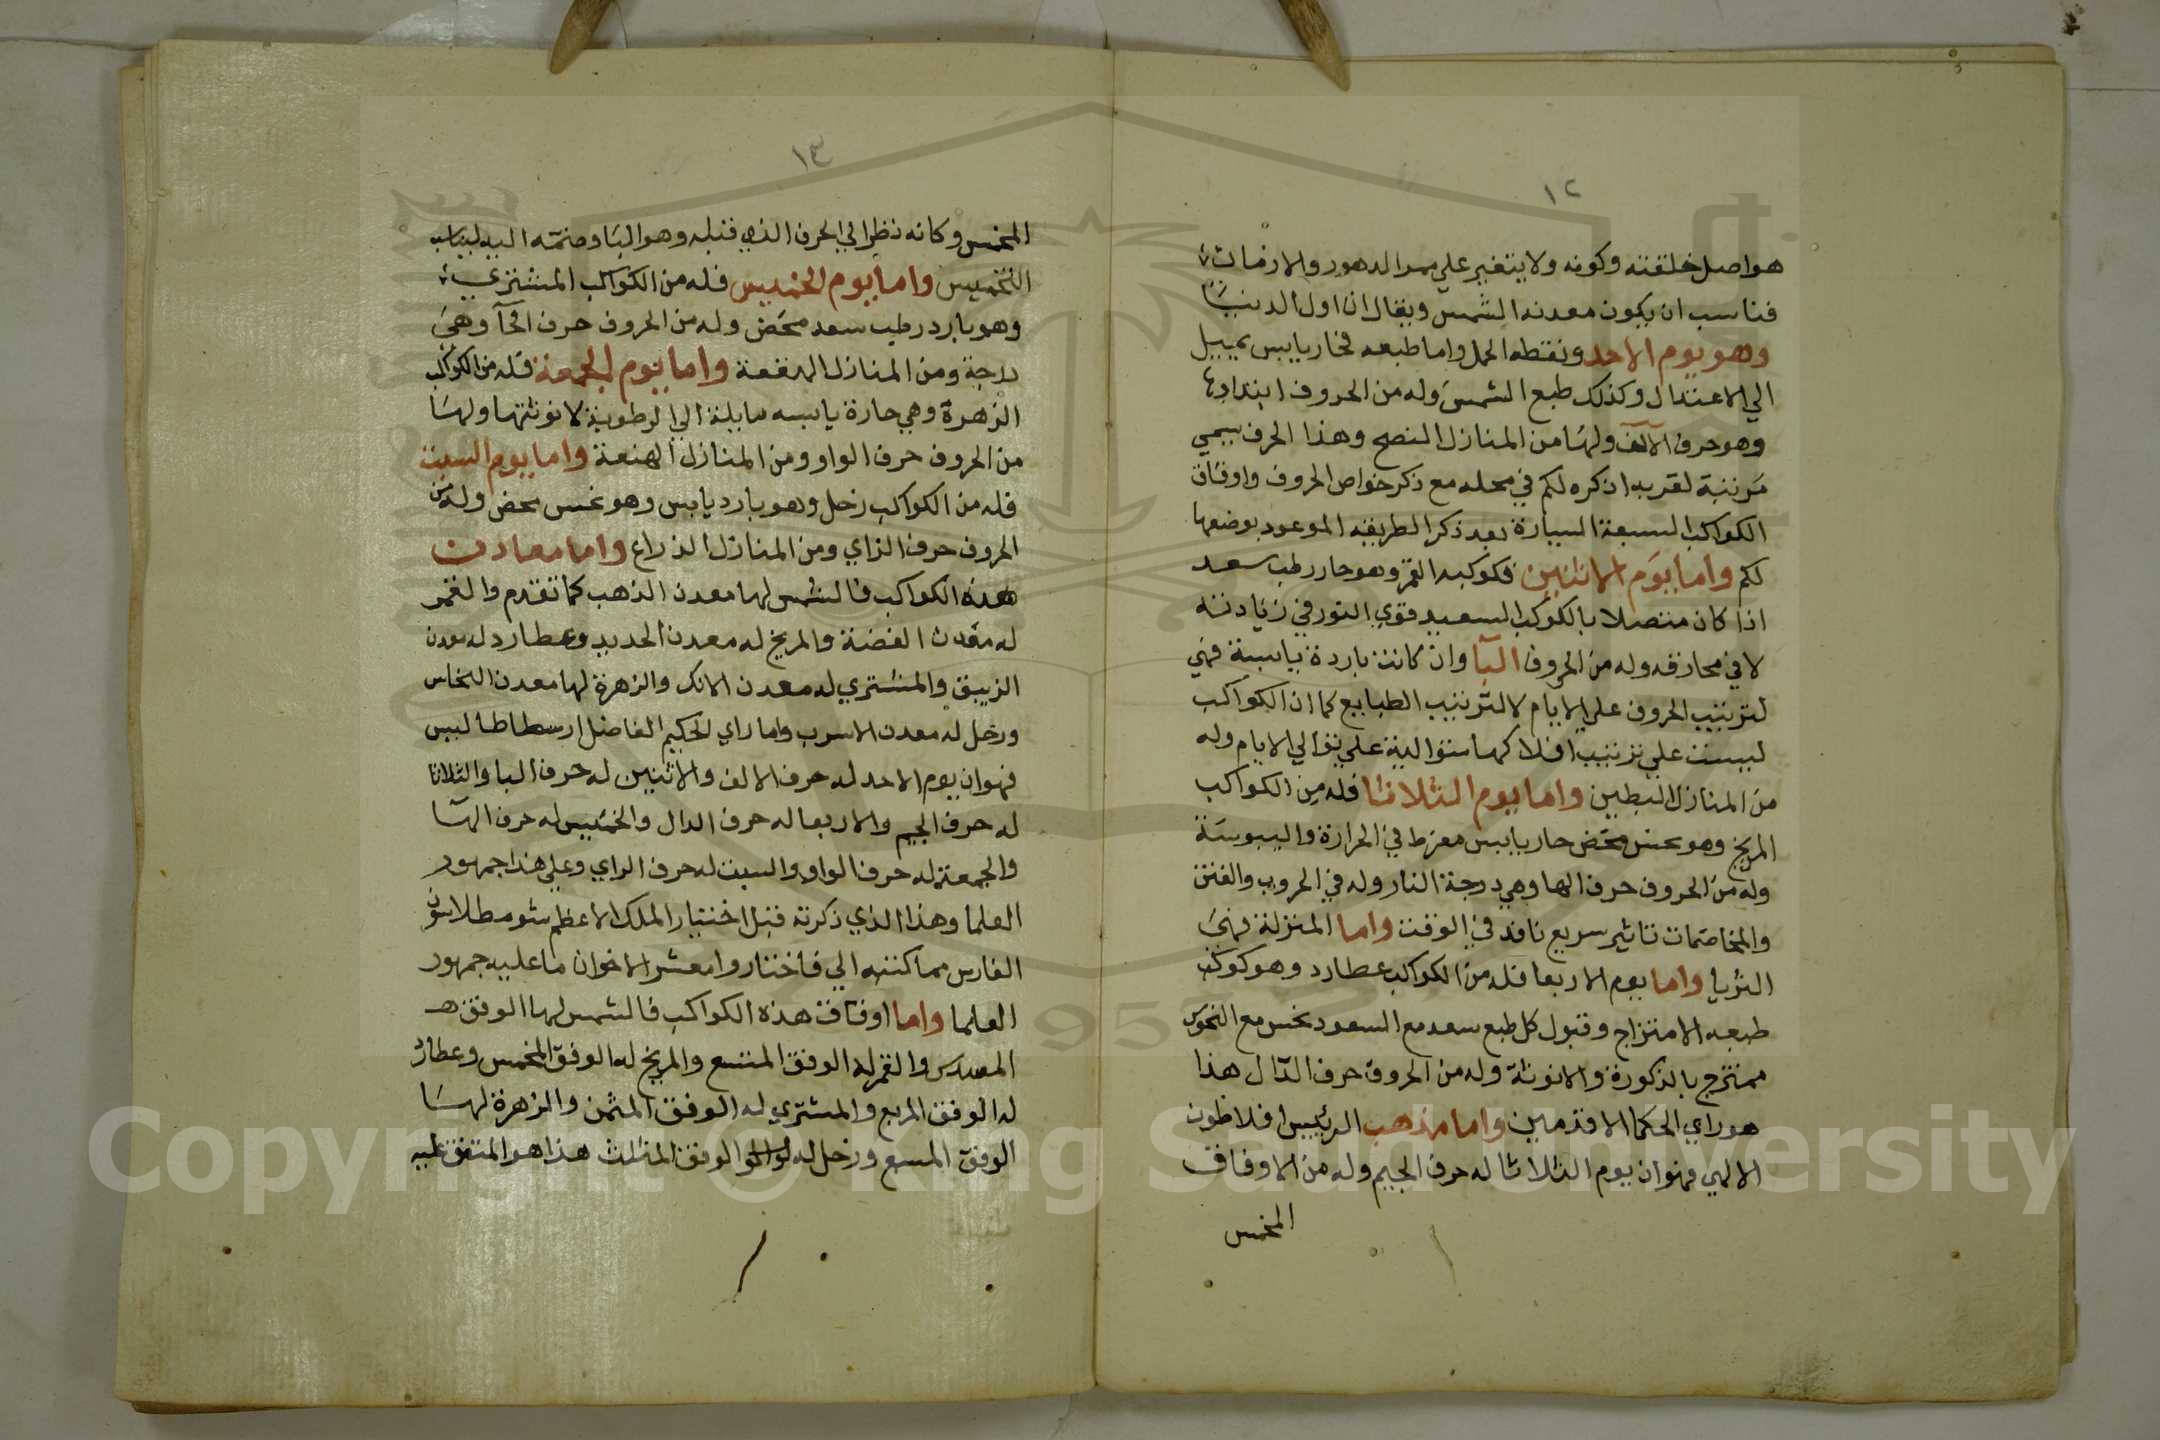 ١٢
هو اصل خلقته وكونه ولا يتغير علي ممر الدهور والازمان
فناسب ان يكون معدنه الشمس ويقال ان اول الدنيا
وهو يوم الاحد ونقطه الحمل واما طبعه فحار يابس يميل
الي الاعتدال وكذلك طبع الشمس وله من الحروف ابتداوها
وهو حرف الالف ولها من المنازل النصح وهذا الحرف يسمي
مرتبة لقربه اذكره لكم في محله مع ذكر خواص الحروف واوفاق
الكواكب السبعة السيارة بعد ذكر الطريقه الموعود بوضعها
لكم واما يوم الاثنين فكوكبه القمر وهو حار رطب سعد
اذا كان متصلا بالكوكب السعيد قوي النور في زيادته
لا في محازقه وله من الحروف البا وان كانت باردة يابسة فهي
لترتيب الحروف علي الايام لا لترتيب الطبايع كما ان الكواكب
ليست علي ترتيب افلاكها متوالية علي توالي الايام وله
من المنازل البطين واما يوم الثلاثا فله من الكواكب
المريخ وهو نحس محض حار يابس مفرط في الحرارة واليبوسة
وله من الحروف حرف الها وهي درجة النار وله في الحروب والفتن
والمخاصمات تاثير سريع نافد في الوقت واما المنزلة فهي
الثريا واما يوم الاربعا فله من الكواكب عطارد وهو كوكب
طبعه الامتزاج وقبول كل طبع سعد مع السعود نحس مع النحوس
ممتزج بالذكورة والانوثة وله من الحروف حرف الدال هذا
هو راي الحكما الاقدمين واما مذهب الرئيس افلاطون
الالهي فهو ان يوم الثلاثا له حرف الجيم وله من الاوفاق
المخمس
١٣
المخمس وكانه نظر الي الحرف الذي قبله وهو البا وضمه اليه لبيان
التخميس واما يوم الخميس فله من الكواكب المشتري
وهو بارد رطب سعد محض وله من الحروف حرف الحا وهي
درجة ومن المنازل الهقعة واما يوم الجمعة فله من الكواكب
الزهرة وهي حارة يابسه مايلة الي الرطوبة لانوثتها ولها
من الحروف حرف الواو ومن المنازل الهنعة واما يوم السبت
فله من الكواكب زحل وهو بارد يابس وهو نحس محض وله من
الحروف حرف الزاي ومن المنازل الذراع واما معادن
هذه الكواكب فالشمس لها معدن الذهب كما تقدم والقمر
له معدن الفضة والمريخ له معدن الحديد وعطارد له معدن
الزيبق والمشتري له معدن الانك والزهرة لها معدن النحاس
وزحل له معدن الاسرب واما راي الحكيم الفاضل ارسطاطاليس
فهو ان يوم الاحد له حرف الالف والاثنين له حرف البا والثلاثا
له حرف الجيم والاربعا له حرف الدال والخميس له حرف الها
والجمعة له حرف الواو والسبت له حرف الزاي وعلي هذا جمهور
العلما وهذا الذي ذكرته قبل اختيار الملك الاعظم
الفارس مما كتبه الي فاختاروا معشر الاخوان ما عليه جمهور
العلما واما اوفاق هذه الكواكب فالشمس لها الوفق
المسدس والقمر له الوفق المتسع والمريخ له الوفق المخمس وعطارد
له الوفق المربع والمشتري له الوفق المثمن والزهرة لها
الوفق المسبع وزحل له الوفق المثلث هذا هو المتفق عليه
Copyright © King Saud University